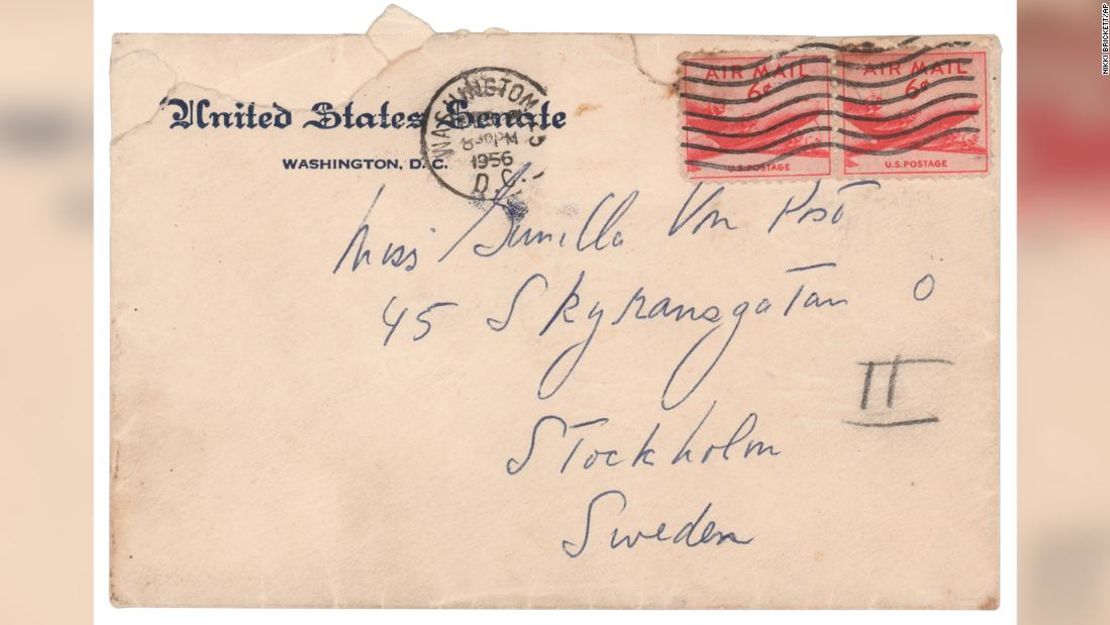 United States Senate
WASHINGTON, D. C.
WASHINGTON
8 30 PM
1956
D. C.
AIR MAIL
6¢
U.S. POSTAGE
AIR MAIL
6¢
U.S. POSTAGE
Miss Gunilla Von Post
45 Skyransgatan Ö
Stockholm
Sweden
II
NIKKI BRICKETT/AP